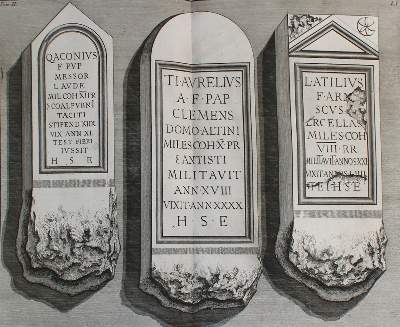 QACONIVS
F PVP
MESSOR
LAVDE
MIL COH XII PR
TACITI
STIPEND XIIX
VIX ANN XL
TEST FIERI
IVSSIT
H S E
TI AVRELIVS
A F PAP
CLEMENS
DOMO ALTINI
MILES COH X PR
ANTISTI
MILITAVIT
ANN XVIII
VIXIT ANN XXXX
H S E
L ATILIVS
F ARN
SCVS
ERCELLAS
MILES COH
VIII PR
MILITAVIT ANNOS XXI
VIXIT
H S E